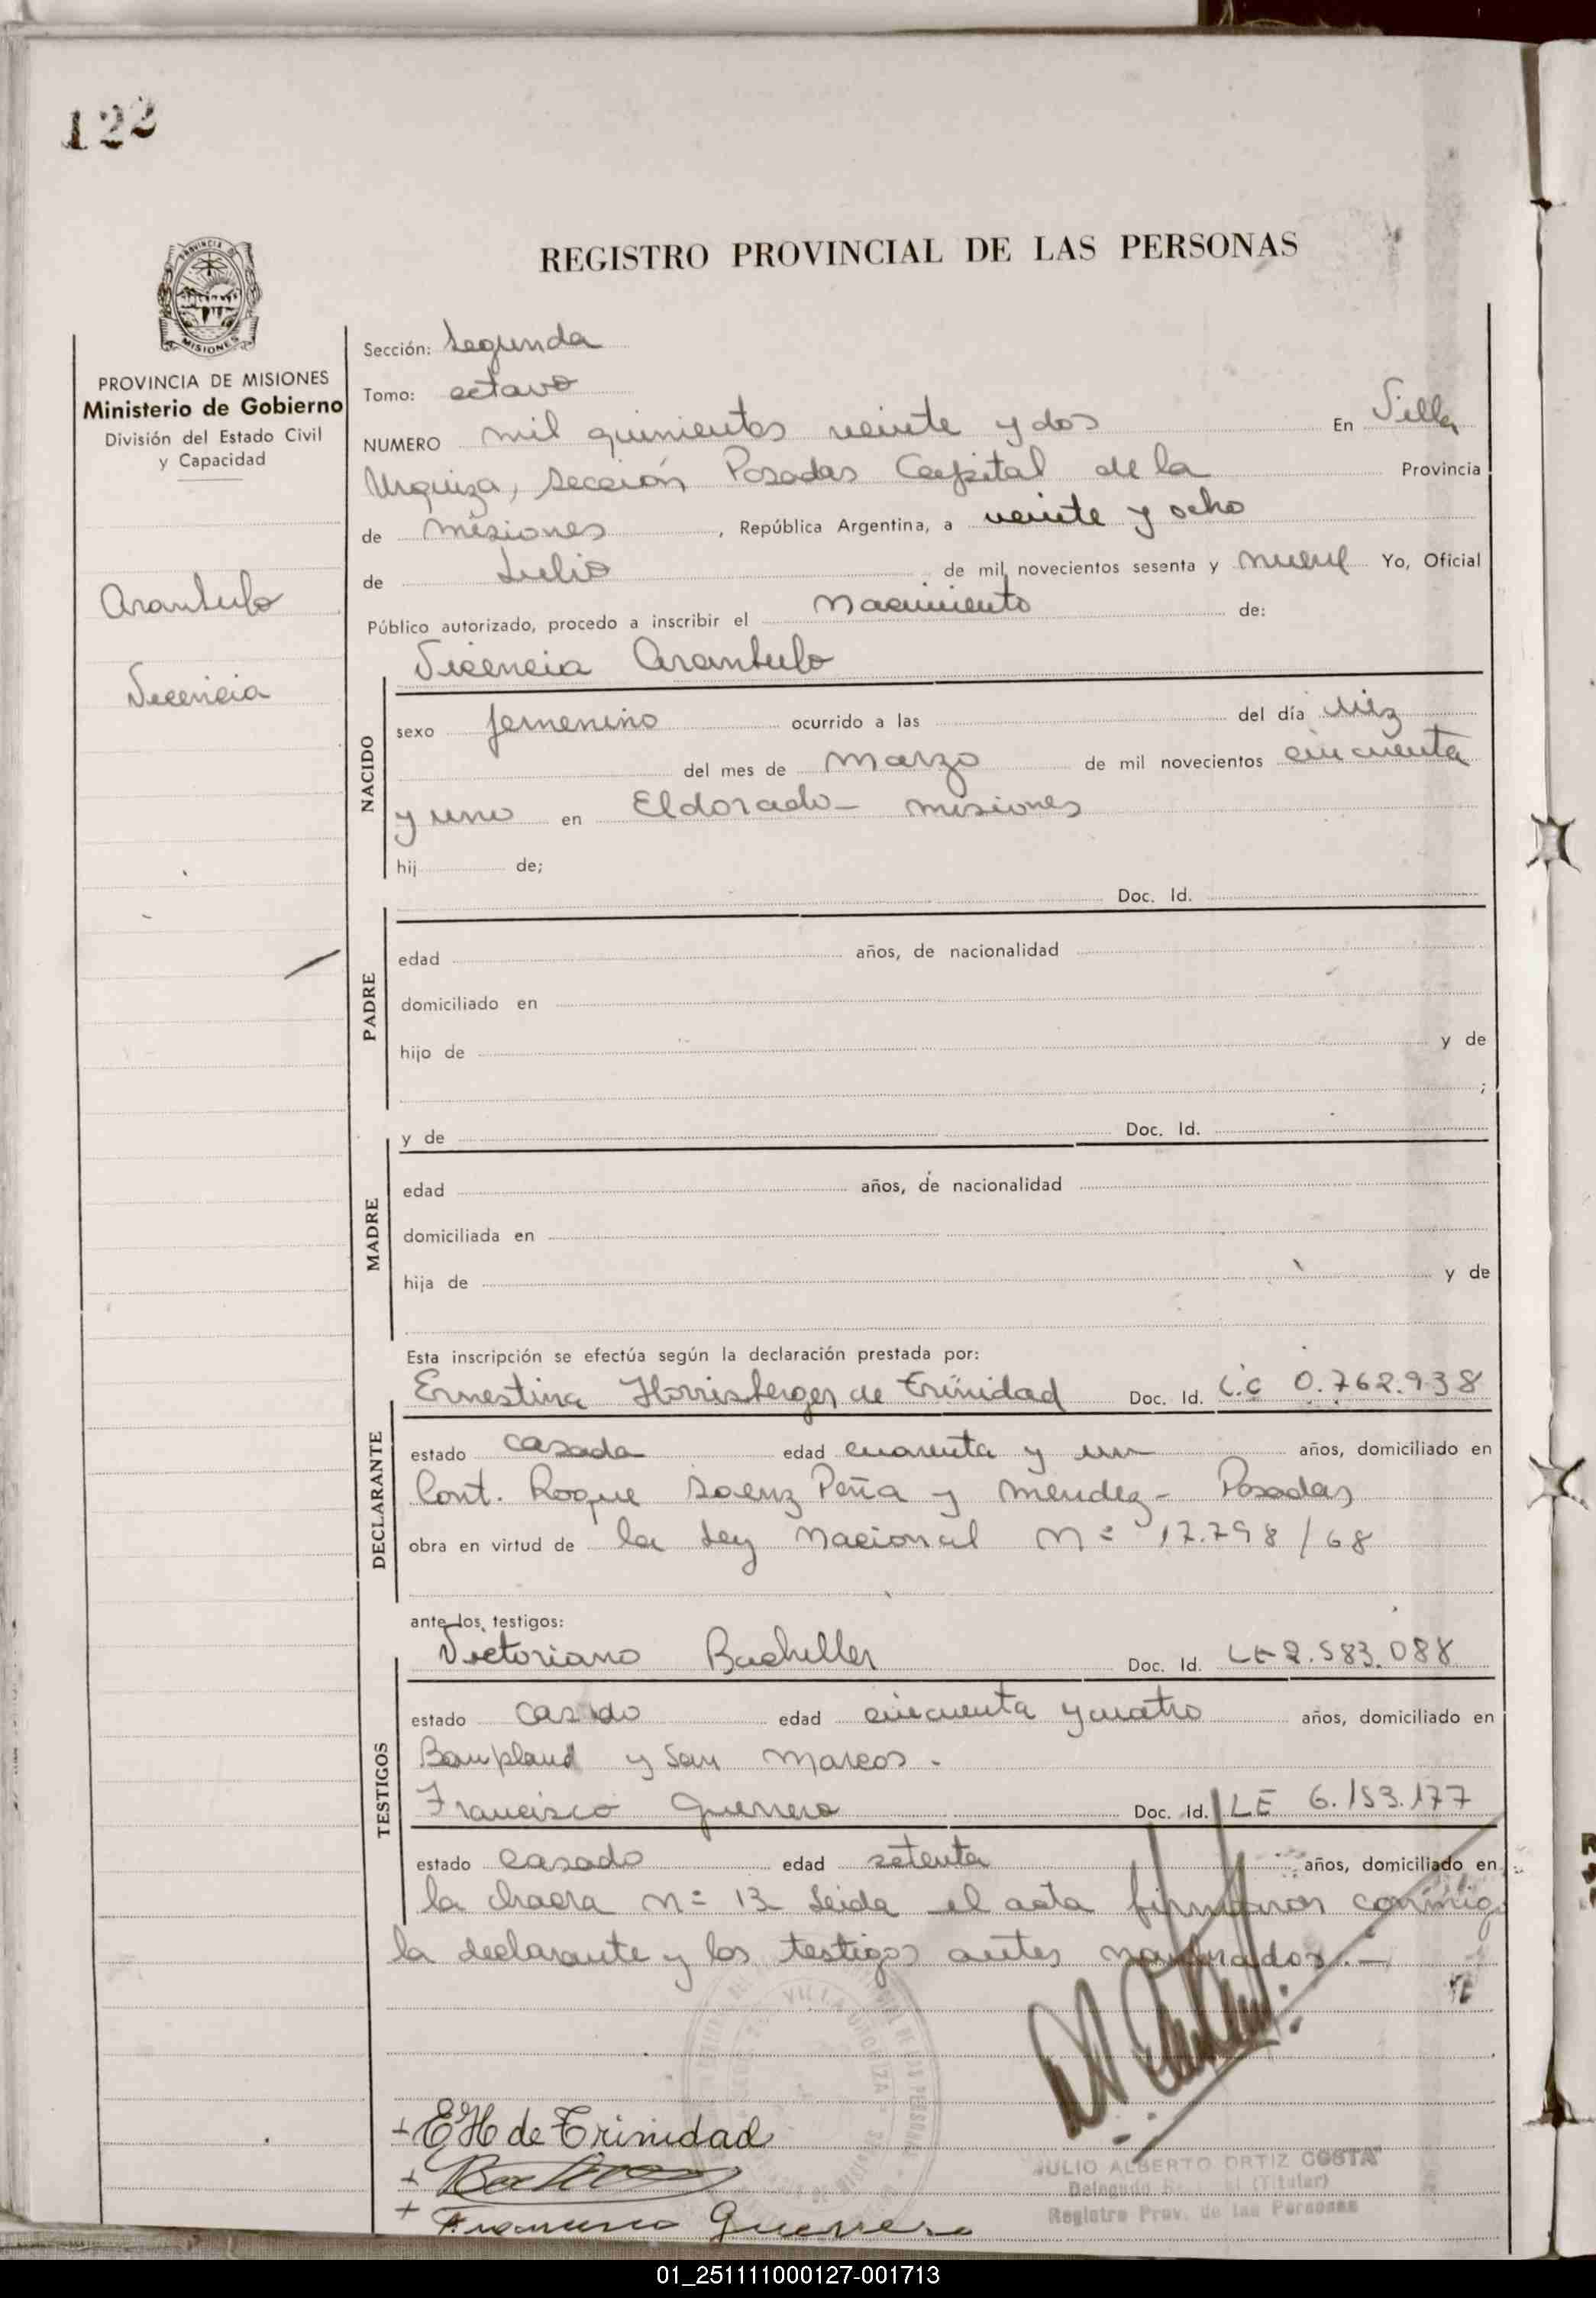 122
REGISTRO PROVINCIAL DE LAS PERSONAS
MISIONES
PROVINCIA DE MISIONES
Ministerio de Gobierno
División del Estado Civil
y Capacidad
Arantulo
Vicencia
Sección: Segunda
Tomo: octavo
NUMERO mil quinientos veinte y dos En Villa
Urquiza, Sección Posadas Capital de la Provincia
de Misiones, República Argentina, a veinte y ocho
de Julio de mil novecientos sesenta y nueve Yo, Oficial
Público autorizado, procedo a inscribir el Nacimiento de:
Vicencia Arantulo
NACIDO
sexo femenino ocurrido a las del día diez
del mes de marzo de mil novecientos cincuenta
y uno en Eldorado - Misiones
hij de;
Doc. Id.
PADRE
edad años, de nacionalidad
domiciliado en
hijo de y de
;
y de Doc. Id.
MADRE
edad años, de nacionalidad
domiciliada en
hija de y de
Esta inscripción se efectúa según la declaración prestada por:
Ernestina Horrisberger de Trinidad Doc. Id. L.C 0.762.938
DECLARANTE
estado casada edad cuarenta y un años, domiciliado en
Cont. Roque Saenz Peña y Mendez - Posadas
obra en virtud de la Ley Nacional Nº 17.798/68
ante los testigos:
Victoriano Bachiller Doc. Id. LE 2.583.088
TESTIGOS
estado casado edad cincuenta y cuatro años, domiciliado en
Bonpland y San Marcos.
Francisco Guerrero Doc. Id. LE 6.153.177
estado casado edad setenta años, domiciliado en
la chacra Nº 13 Leida el acta firmaron conmigo
la declarante y los testigos antes nombrados.-
VILLA URQUIZA
+ EH de Trinidad
+
+ Francisco Guerrero
JULIO ALBERTO ORTIZ COSTA
Delegado (Titular)
Registro Prov. de las Personas
01_251111000127-001713